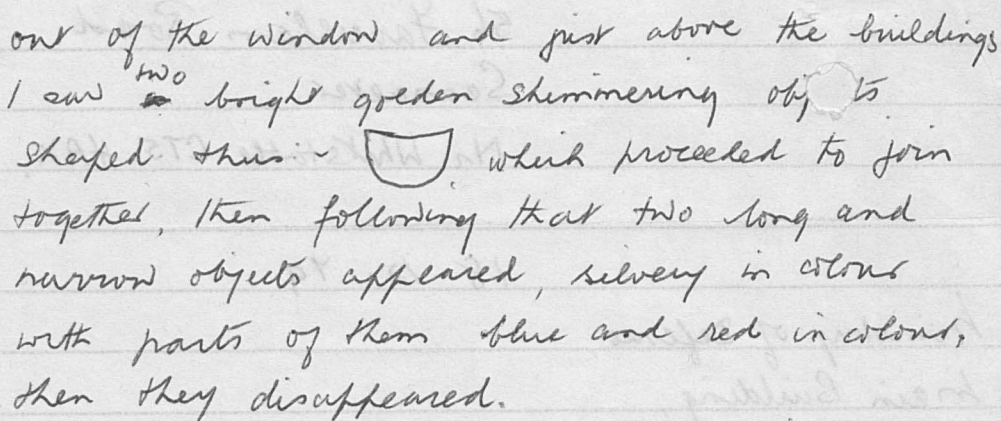 out of the window and just above the buildings
I saw two bright golden shimmering obj ts
shaped thus - which proceeded to join
together, then following that two long and
narrow objects appeared, silvery in colour
with parts of them blue and red in colour,
then they disappeared.